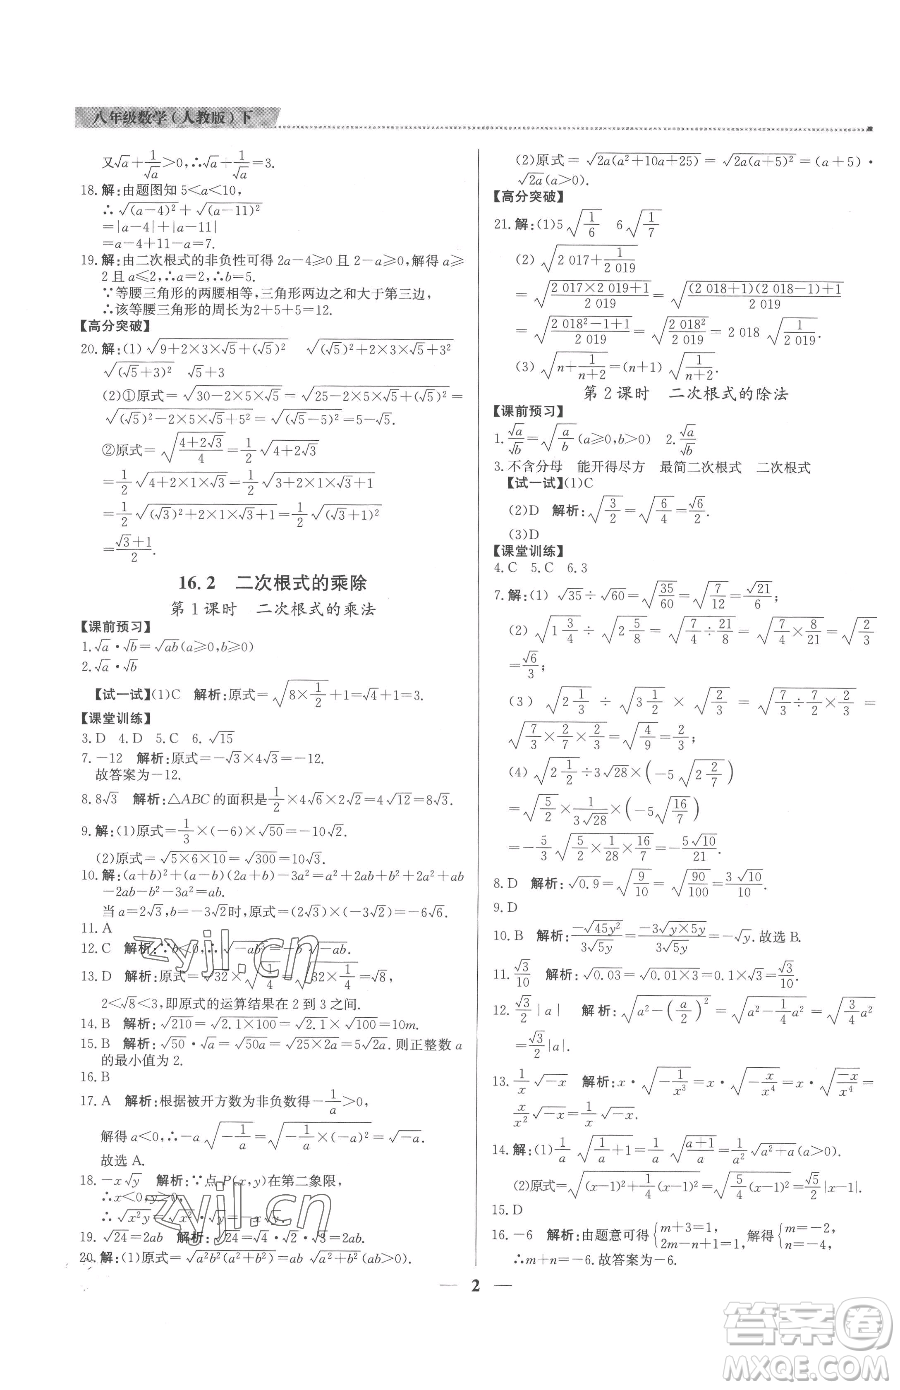 八年级数学(人教版)下
又√a+1/√a>0,∴√a+1/√a=3.
18. 解:由题图知 5<a<10,
∴√((a-4)²)+√((a-11)²)
=|a-4|+|a-11|
=a-4+11-a=7.
19. 解:由二次根式的非负性可得 2a-4≥0 且 2-a≥0,解得 a≥
2且 a≤2,∴a=2,∴b=5.
∵等腰三角形的两腰相等,三角形两边之和大于第三边,
∴该等腰三角形的周长为2+5+5=12.
【高分突破】
20. 解:(1)√(9+2×3×√5+(√5)²) √(3²+2×3×√5+(√5)²)
√((√5+3)²) √5+3
(2)①原式=√(30-2×5×√5)=√(25-2×5×√5+5)=
√((√5)²-2×5×√5+5²)=√((5-√5)²)=5-√5.
②原式=√((4+2√3)/4)=1/2√(4+2√3)
=1/2√(3+2×1×√3+1)=1/2√(3+2×1×√3+1)
=1/2√((√3)²+2×1×√3+1²)=1/2√((√3+1)²)
=(√3+1)/2.
16.2 二次根式的乘除
第1课时 二次根式的乘法
【课前预习】
1. √a·√b=√ab(a≥0,b≥0)
2. √a·√b
【试一试】(1)C 解析:原式=√(8×1/2)+1=√4+1=3.
【课堂训练】
3. D 4. D 5. C 6. √15
7. -12 解析:原式=-√3×4√3=-12.
故答案为-12.
8. 8√3 解析:△ABC的面积是1/2×4√6×2√2=4√12=8√3.
9. 解:(1)原式=1/3×(-6)√50=-10√2.
(2)原式=√(5×6×10)=√300=10√3.
10. 解:(a+b)²+(a-b)(2a+b)-3a²=a²+2ab+b²+2a²+ab
-2ab-b²-3a²=ab.
当 a=2√3,b=-3√2时,原式=(2√3)×(-3√2)=-6√6.
11. A
12. C 解析:∵b<0,∴b√-a=-√-ab.
13. D 解析:原式=√32×√(1/4)=√(32×1/4)=√8,
2<√8<3,即原式的运算结果在 2 到 3 之间.
14. B 解析:√210=√(2.1×100)=√2.1×√100=10m.
15. B 解析:√50·√a=√50a=√(25×2a)=5√2a. 则正整数 a
的最小值为 2.
16. B
17. A 解析:根据被开方数为非负数得-1/a>0,
解得 a<0,∴-a√(-1/a)=√(-1/a×(-a)²)=√-a.
故选 A.
18. -x√y 解析:∵点 P(x,y)在第二象限,
∴x<0,y>0,
∴√(x²y)=√x²·√y=-x√y.
19. √24=2ab 解析:√24=2×√2×√3=2ab.
20. 解:(1)原式=√(a²b²(a²+b²))=ab√(a²+b²)(ab>0).
(2)原式=√(2a(a²+10a+25))=√(2a(a+5)²)=(a+5)·
√2a(a>0).
【高分突破】
21. 解:(1)5√(1/6) 6√(1/7)
(2)√(2 017+1/2 019)
=√((2 017×2 019+1)/2 019)=√(((2 018+1)(2 018-1)+1)/2 019)
=√((2 018²-1+1)/2 019)=√(2 018²/2 019)=2 018√(1/2 019).
(3)√(n+1/(n+2))=(n+1)√(1/(n+2))
第2课时 二次根式的除法
【课前预习】
1. √a/√b=√(a/b)(a≥0,b>0) 2. √a/√b
3. 不含分母 能开得尽方 最简二次根式 二次根式
【试一试】(1)C
(2)D 解析:√(3/2)=√(6/4)=√6/2.
(3)D
【课堂训练】
4. C 5. C 6. 3
7. 解:(1)√35÷√60=√(35/60)=√(7/12)=√21/6;
(2)√(1 3/4)÷√(2 5/8)=√(7/4÷21/8)=√(7/4×8/21)=√(2/3)
=√6/3;
(3)√(2 1/3)÷√(3 1/2)×√(2/3)=
√(7/3×2/7×2/3)=√(4/9)=2/3;
(4)√(2 1/2)÷3√28×(-5√(2 2/7))
=√(5/2)×1/(3√28)×(-5√(16/7))
=-5/3√(5/2×1/28×16/7)=-5√10/21.
8. D 解析:√0.9=√(9/10)=√(90/100)=3√10/10.
9. D
10. B 解析:-√(45y²)/(3√5y)=-3√(y×5y)/(3√5y)=-√y.故选 B.
11. √3/10 解析:√0.03=√(0.01×3)=0.1×√3=√3/10.
12. √3/2|a| 解析:√(a²-(a/2)²)=√(a²-1/4a²)=√(3/4a²)=
√3/2|a|.
13. 1/x√-x 解析:x·√(-1/x³)=x·√(-x/x⁴)=x·√-x/x²=
1/x√-x.
14. 解:(1)1/a√(1+1/a)=1/a√((a+1)/a)=1/a²√(a²+a)(a>0).
(2)原式=√((x-1)²+1/4(x-1)²)=√(5/4(x-1)²)=√5/2|x-1|.
15. D
16. -6 解析:由题意可得{m+3=1, 2m-n=1, 解得{m=-2, n=-5,
∴m+n=-6. 故答案为-6.
2
zyjl.cn
zyjl.cn
答案圈
MXQE.COM